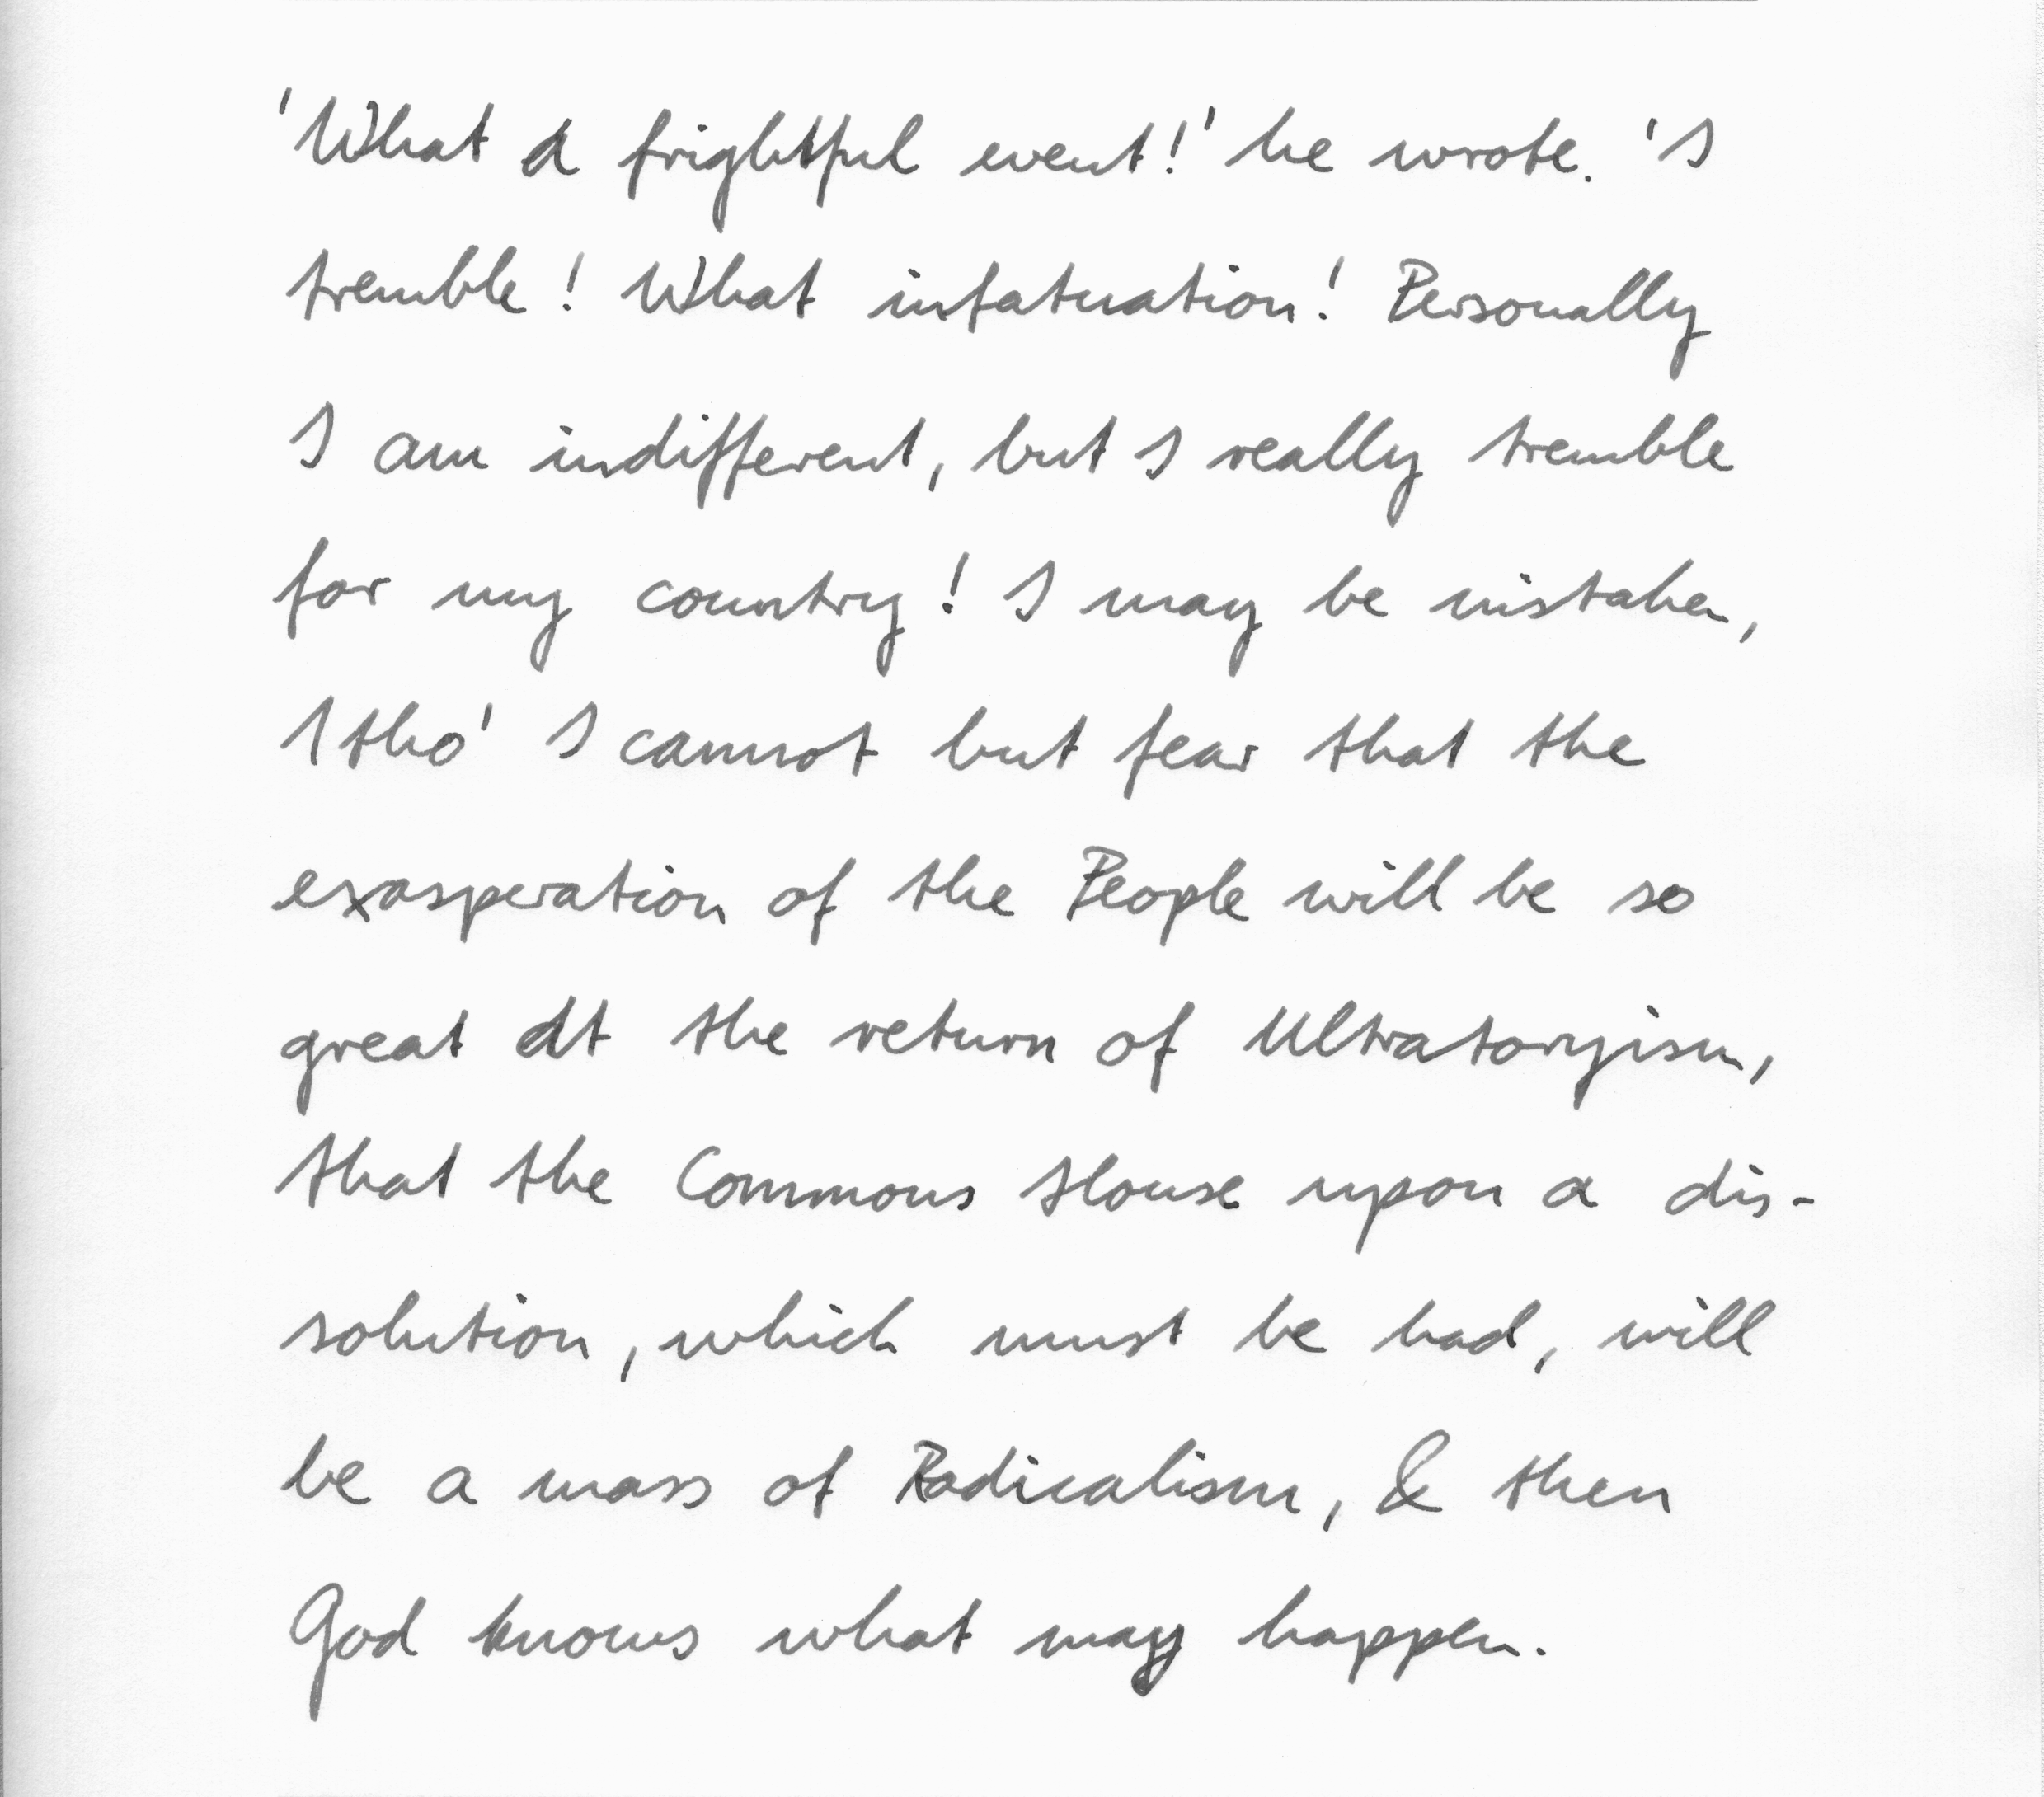 'What a frightful event!' he wrote. 'I
tremble! What infatuation! Personally
I am indifferent, but I really tremble
for my country! I may be mistaken,
I tho' I cannot but fear that the
exasperation of the People will be so
great at the return of Ultratoryism,
that the Commons House upon a dis-
solution, which must be had, will
be a mass of Radicalism, & then
God knows what may happen.